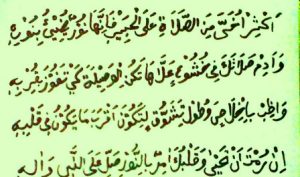 اَكْثِرْ اُخَيَّ مِنَ الصَّلَاةِ عَلَى الْحَبِيْبِ فَإِنَّهَا نُوْرٌ يُضِيْئُ بِنُوْرِهِ
وَاَدِمْ صَلَاتَكَ فِى خُشُوْعٍ عَلَّهَا تَكُنِ الْوَصِيْلَةَ كَيْ تَفُوْزَ بِقُرْبِهِ
وَاظِبْ بِاِخْلَاصٍ وَطُوْلِ تَشَوُّقٍ لِتَكُوْنَ اَقْرَبَ مَا يَكُوْنُ فِى قَلْبِهِ
اِنْ رُمْتَ اَنْ تَحْيٰى وَقَلْبُكَ بِالنُّوْرِ صَلِّ عَلَى النَّبِى وَاٰلِهِ